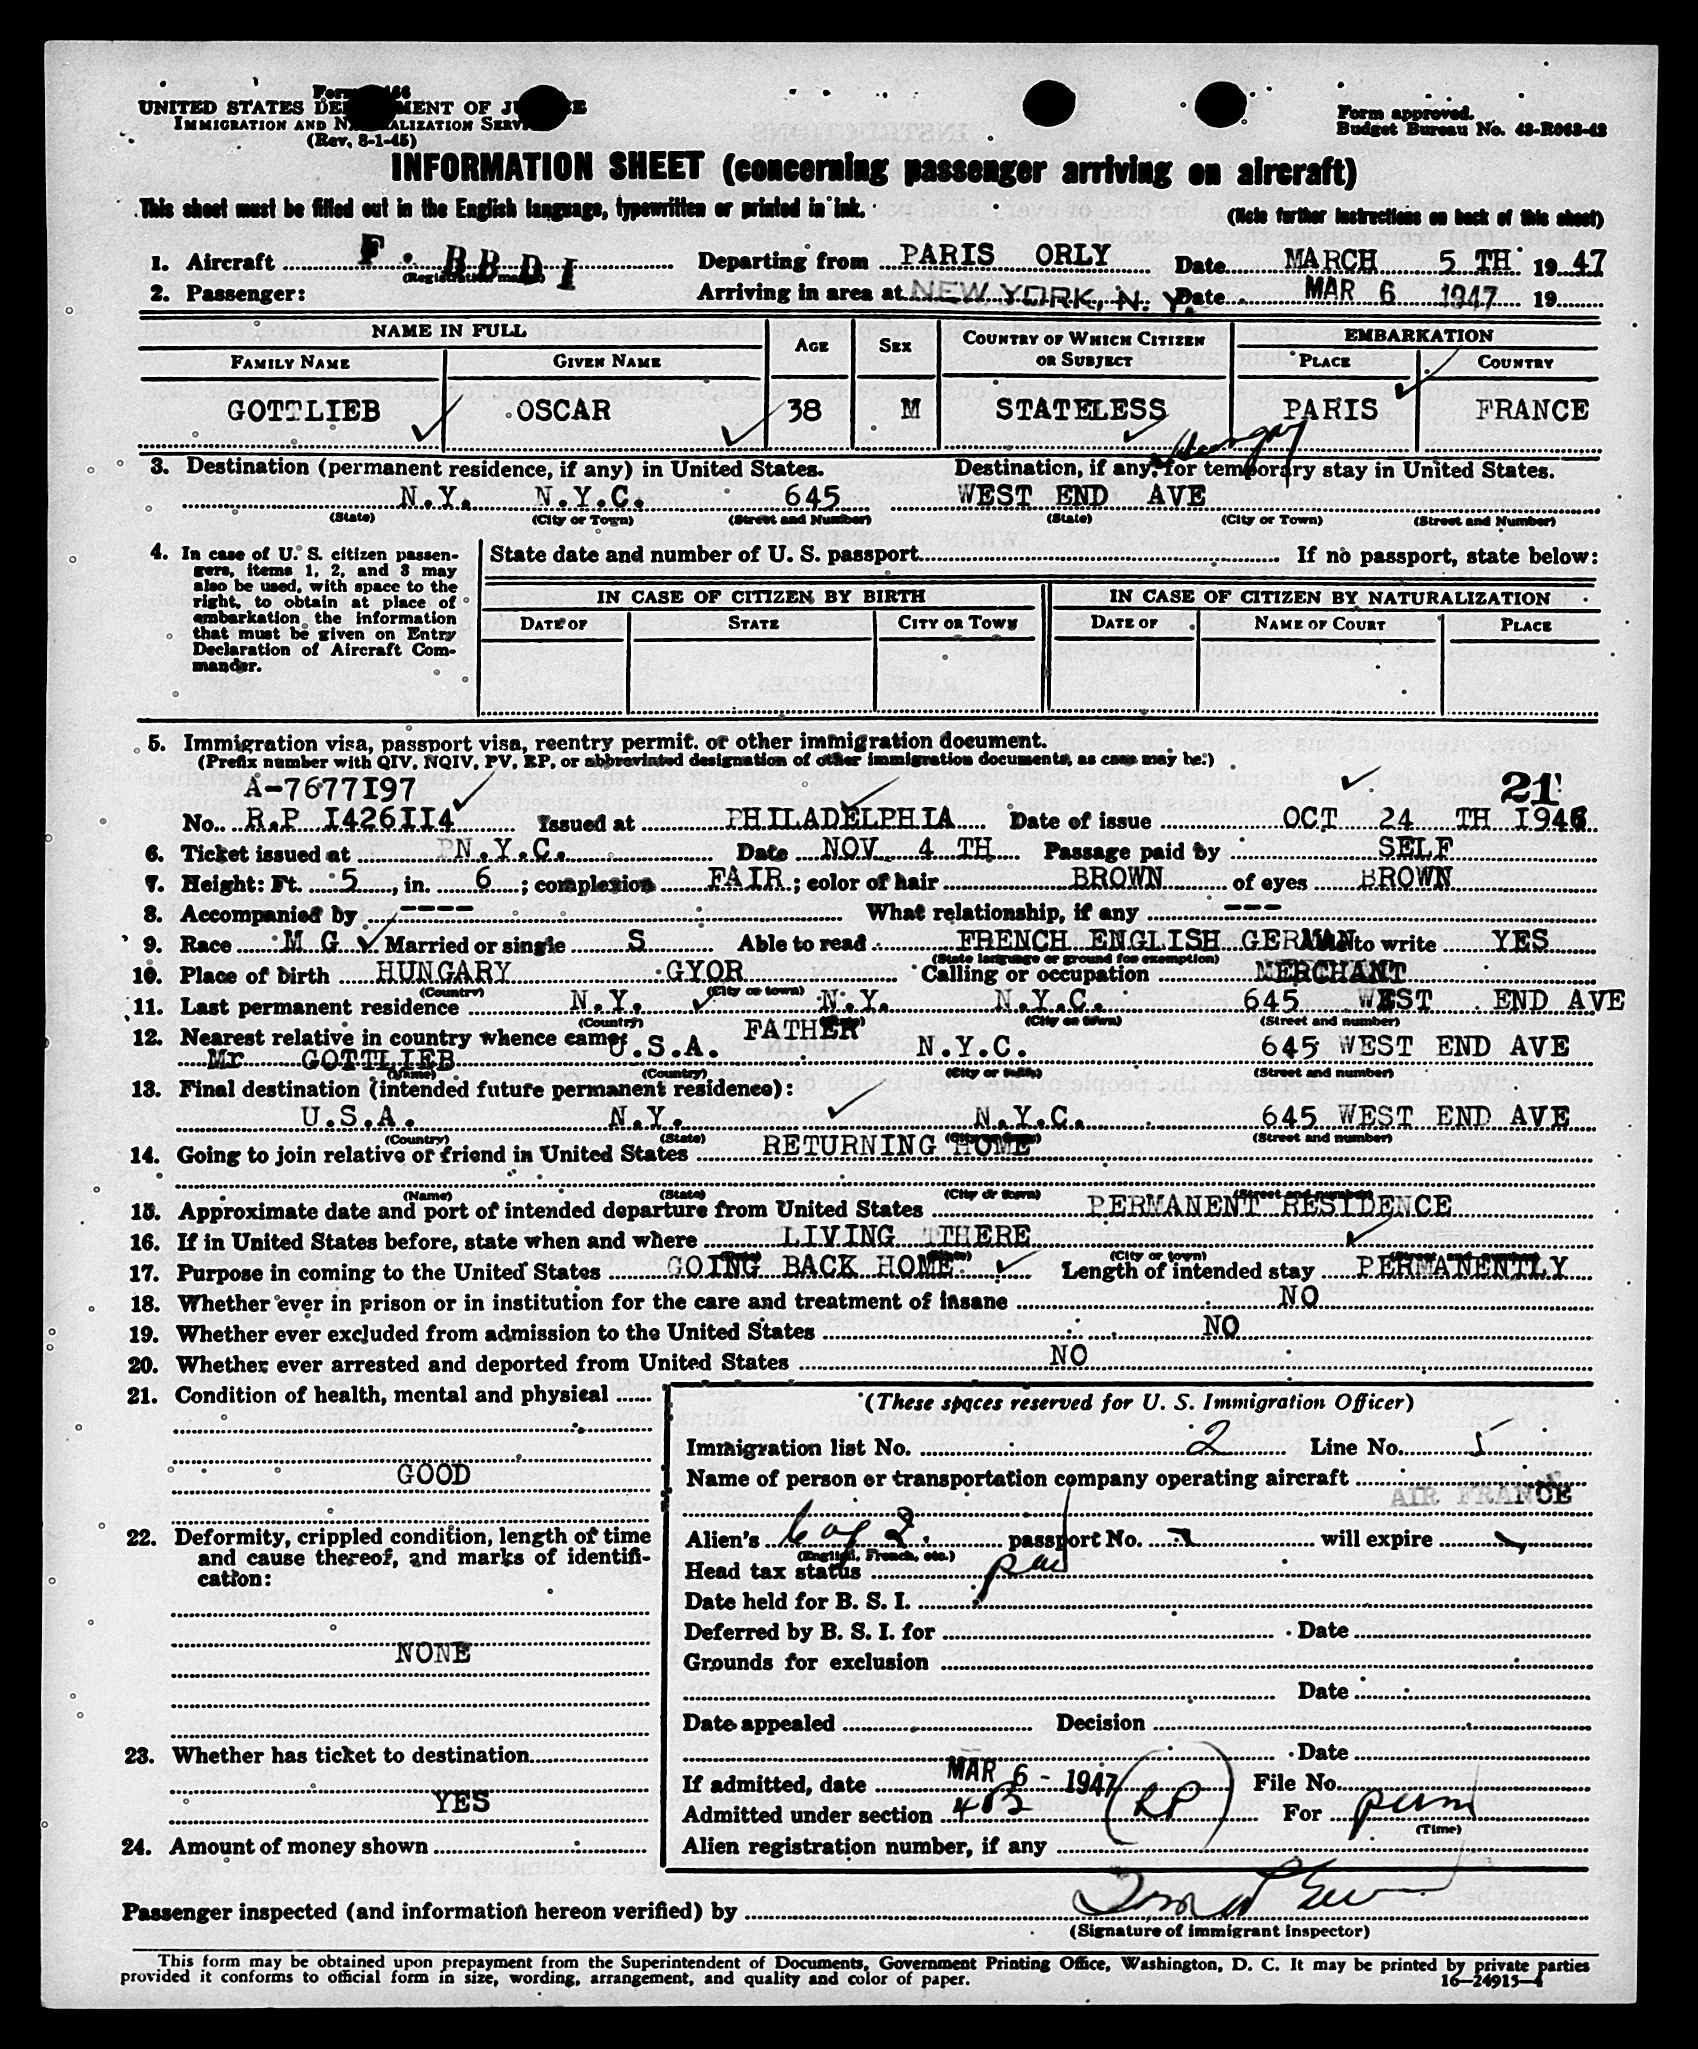 Form 466
UNITED STATES DEPARTMENT OF JUSTICE
IMMIGRATION AND NATURALIZATION SERVICE
(Rev. 8-1-45)
Form approved.
Budget Bureau No. 43-R063-42
INFORMATION SHEET (concerning passenger arriving on aircraft)
This sheet must be filled out in the English language, typewritten or printed in ink.
(Note further instructions on back of this sheet)
1. Aircraft F. BBDI Departing from PARIS ORLY Date MARCH 5 TH 1947
(Registration marks)
2. Passenger: Arriving in area at NEW YORK, N. Y. Date MAR 6 1947 19
NAME IN FULL AGE SEX COUNTRY OF WHICH CITIZEN OR SUBJECT EMBARKATION
FAMILY NAME GIVEN NAME PLACE COUNTRY
GOTTLIEB OSCAR 38 M STATELESS PARIS FRANCE
Hungary
3. Destination (permanent residence, if any) in United States. Destination, if any, for temporary stay in United States.
N.Y. N.Y.C. 645 WEST END AVE
(State) (City or Town) (Street and Number) (State) (City or Town) (Street and Number)
4. In case of U. S. citizen passen-
gers, items 1, 2, and 3 may
also be used, with space to the
right, to obtain at place of
embarkation the information
that must be given on Entry
Declaration of Aircraft Com-
mander.
State date and number of U. S. passport If no passport, state below:
IN CASE OF CITIZEN BY BIRTH IN CASE OF CITIZEN BY NATURALIZATION
DATE OF STATE CITY OR TOWN DATE OF NAME OF COURT PLACE
5. Immigration visa, passport visa, reentry permit. or other immigration document.
(Prefix number with QIV, NQIV, PV, RP, or abbreviated designation of other immigration documents, as case may be:)
A-7677I97 21
No. R.P I426II4 Issued at PHILADELPHIA Date of issue OCT 24 TH I946
6. Ticket issued at N.Y.C. Date NOV 4 TH Passage paid by SELF
7. Height: Ft. 5, in. 6; complexion FAIR; color of hair BROWN of eyes BROWN
8. Accompanied by ---- What relationship, if any ---
9. Race M G Married or single S Able to read FRENCH ENGLISH GERMAN Able to write YES
(State language or ground for exemption)
10. Place of birth HUNGARY GYOR Calling or occupation MERCHANT
(Country) (City or town)
11. Last permanent residence N.Y. N.Y. N.Y.C. 645 WEST END AVE
(Country) (State) (City or town) (Street and number)
12. Nearest relative in country whence came: FATHER
Mr GOTTLIEB U.S.A. N.Y.C. 645 WEST END AVE
(Name) (Country) (City or town) (Street and number)
13. Final destination (intended future permanent residence):
U.S.A. N.Y. N.Y.C. 645 WEST END AVE
(Country) (State) (City or town) (Street and number)
14. Going to join relative or friend in United States RETURNING HOME
(Name) (State) (City or town) (Street and number)
15. Approximate date and port of intended departure from United States PERMANENT RESIDENCE
16. If in United States before, state when and where LIVING THERE
(Date) (State) (City or town) (Street and number)
17. Purpose in coming to the United States GOING BACK HOME Length of intended stay PERMANENTLY
18. Whether ever in prison or in institution for the care and treatment of insane NO
19. Whether ever excluded from admission to the United States NO
20. Whether ever arrested and deported from United States NO
21. Condition of health, mental and physical
GOOD
22. Deformity, crippled condition, length of time
and cause thereof, and marks of identifi-
cation:
NONE
23. Whether has ticket to destination
YES
24. Amount of money shown
(These spaces reserved for U. S. Immigration Officer)
Immigration list No. 2 Line No. 5
Name of person or transportation company operating aircraft
AIR FRANCE
Alien's passport No. will expire
(English, French, etc.)
Head tax status
Date held for B. S. I.
Deferred by B. S. I. for Date
Grounds for exclusion
Date
Date appealed Decision
Date
If admitted, date MAR 6 - 1947 File No.
Admitted under section 4 (RP) For perm
(Time)
Alien registration number, if any
Passenger inspected (and information hereon verified) by
(Signature of immigrant inspector)
This form may be obtained upon prepayment from the Superintendent of Documents, Government Printing Office, Washington, D. C. It may be printed by private parties
provided it conforms to official form in size, wording, arrangement, and quality and color of paper.
16—24915-4